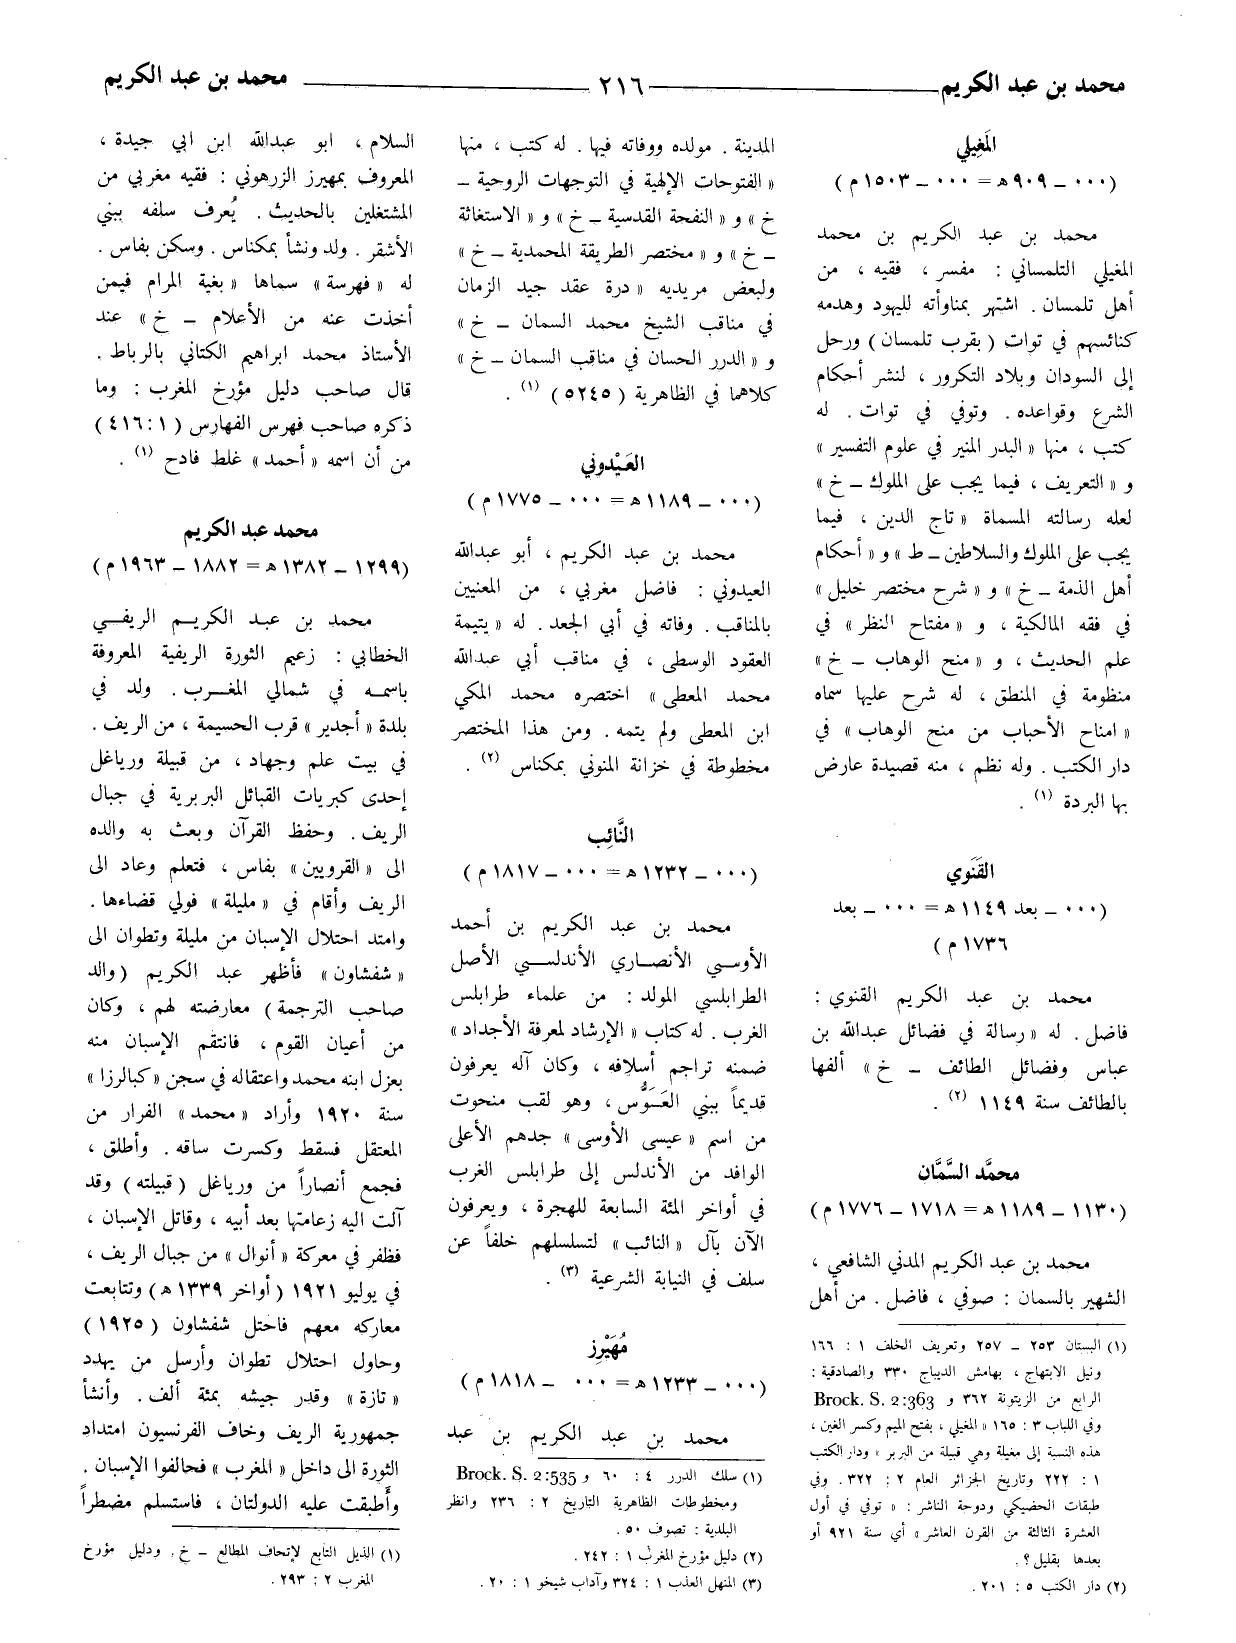 محمد بن عبد الكريم ٢١٦ محمد بن عبد الكريم
المَغِيلي
(٠٠٠ ــ ٩٠٩ هـ = ٠٠٠ ــ ١٥٠٣ م)
محمد بن عبد الكريم بن محمد
المغيلي التلمساني : مفسر ، فقيه ، من
أهل تلمسان . اشتهر بمناوأته لليهود وهدمه
كنائسهم في توات ( بقرب تلمسان ) ورحل
إلى السودان وبلاد التكرور ، لنشر أحكام
الشرع وقواعده . وتوفي في توات . له
كتب ، منها « البدر المنير في علوم التفسير »
و « التعريف ، فيما يجب على الملوك ــ خ »
لعله رسالته المسماة « تاج الدين ، فيما
يجب على الملوك والسلاطين ــ ط » و « أحكام
أهل الذمة ــ خ » و « شرح مختصر خليل »
في فقه المالكية ، و « مفتاح النظر » في
علم الحديث ، و « منح الوهاب ــ خ »
منظومة في المنطق ، له شرح عليها سماه
« امناح الأحباب من منح الوهاب » في
دار الكتب . وله نظم ، منه قصيدة عارض
بها البردة (١) .
القَنَوي
(٠٠٠ ــ بعد ١١٤٩ هـ = ٠٠٠ ــ بعد
١٧٣٦ م)
محمد بن عبد الكريم القنوي :
فاضل . له « رسالة في فضائل عبدالله بن
عباس وفضائل الطائف ــ خ » ألفها
بالطائف سنة ١١٤٩ (٢) .
محمَّد السَّمَّان
(١١٣٠ ــ ١١٨٩ هـ = ١٧١٨ ــ ١٧٧٦ م)
محمد بن عبد الكريم المدني الشافعي ،
الشهير بالسمان : صوفي ، فاضل . من أهل
(١) البستان ٢٥٣ ــ ٢٥٧ وتعريف الخلف ١ : ١٦٦
ونيل الابتهاج ، بهامش الديباج ٣٣٠ والصادقية :
الرابع من الزيتونة ٣٦٢ و Brock. S. 2:363
وفي اللباب ٣ : ١٦٥ « المغيلي ، بفتح الميم وكسر الغين ،
هذه النسبة إلى مغيلة وهي قبيلة من البربر » ودار الكتب
١ : ٢٢٢ وتاريخ الجزائر العام ٢ : ٣٢٢ . وفي
طبقات الحضيكي ودوحة الناشر : « توفي في أول
العشرة الثالثة من القرن العاشر » أي سنة ٩٢١ أو
بعدها بقليل ؟ .
(٢) دار الكتب ٥ : ٢٠١ .
المدينة . مولده ووفاته فيها . له كتب ، منها
« الفتوحات الإلهية في التوجهات الروحية ــ
خ » و « النفحة القدسية ــ خ » و « الاستغاثة
ــ خ » و « مختصر الطريقة المحمدية ــ خ »
ولبعض مريديه « درة عقد جيد الزمان
في مناقب الشيخ محمد السمان ــ خ »
و « الدرر الحسان في مناقب السمان ــ خ »
كلاهما في الظاهرية ( ٥٢٤٥ ) (١) .
العَيْدوني
(٠٠٠ ــ ١١٨٩ هـ = ٠٠٠ ــ ١٧٧٥ م)
محمد بن عبد الكريم ، أبو عبدالله
العيدوني : فاضل مغربي ، من المعنيين
بالمناقب . وفاته في أبي الجعد . له « يتيمة
العقود الوسطى ، في مناقب أبي عبدالله
محمد المعطى » اختصره محمد المكي
ابن المعطى ولم يتمه . ومن هذا المختصر
مخطوطة في خزانة المنوني بمكناس (٢) .
النَّائِب
(٠٠٠ ــ ١٢٣٢ هـ = ٠٠٠ ــ ١٨١٧ م)
محمد بن عبد الكريم بن أحمد
الأوسي الأنصاري الأندلسي الأصل
الطرابلسي المولد : من علماء طرابلس
الغرب . له كتاب « الإرشاد لمعرفة الأجداد »
ضمنه تراجم أسلافه ، وكان آله يعرفون
قديماً ببني العَوَّوس ، وهو لقب منحوت
من اسم « عيسى الأوسى » جدهم الأعلى
الوافد من الأندلس إلى طرابلس الغرب
في أواخر المئة السابعة للهجرة ، ويعرفون
الآن بآل « النائب » لتسلسلهم خلفاً عن
سلف في النيابة الشرعية (٣) .
مُهَيْرِز
(٠٠٠ ــ ١٢٣٣ هـ = ٠٠٠ ــ ١٨١٨ م)
محمد بن عبد الكريم بن عبد
(١) سلك الدرر ٤ : ٦٠ و Brock. S. 2:535
ومخطوطات الظاهرية التاريخ ٢ : ٢٣٦ وانظر
البلدية : تصوف ٥٠ .
(٢) دليل مؤرخ المغرب ١ : ٢٤٢ .
(٣) المنهل العذب ١ : ٣٢٤ وآداب شيخو ١ : ٢٠ .
السلام ، ابو عبدالله ابن ابي جيدة ،
المعروف بمهيرز الزرهوني : فقيه مغربي من
المشتغلين بالحديث . يُعرف سلفه ببني
الأشقر . ولد ونشأ بمكناس . وسكن بفاس .
له « فهرسة » سماها « بغية المرام فيمن
أخذت عنه من الأعلام ــ خ » عند
الأستاذ محمد ابراهيم الكتاني بالرباط .
قال صاحب دليل مؤرخ المغرب : وما
ذكره صاحب فهرس الفهارس ( ١ : ٤١٦ )
من أن اسمه « أحمد » غلط فادح (١) .
محمد عبد الكريم
(١٢٩٩ ــ ١٣٨٢ هـ = ١٨٨٢ ــ ١٩٦٣ م)
محمد بن عبد الكريم الريفي
الخطابي : زعيم الثورة الريفية المعروفة
باسمه في شمالي المغرب . ولد في
بلدة « أجدير » قرب الحسيمة ، من الريف .
في بيت علم وجهاد ، من قبيلة ورياغل
إحدى كبريات القبائل البربرية في جبال
الريف . وحفظ القرآن وبعث به والده
الى « القرويين » بفاس ، فتعلم وعاد الى
الريف وأقام في « مليلة » فولي قضاءها .
وامتد احتلال الإسبان من مليلة وتطوان الى
« شفشاون » فأظهر عبد الكريم (والد
صاحب الترجمة ) معارضته لهم ، وكان
من أعيان القوم ، فانتقم الإسبان منه
بعزل ابنه محمد واعتقاله في سجن « كبالرزا »
سنة ١٩٢٠ وأراد « محمد » الفرار من
المعتقل فسقط وكسرت ساقه . وأطلق ،
فجمع أنصاراً من ورياغل ( قبيلته ) وقد
آلت اليه زعامتها بعد أبيه ، وقاتل الإسبان ،
فظفر في معركة « أنوال » من جبال الريف ،
في يوليو ١٩٢١ ( أواخر ١٣٣٩ هـ ) وتتابعت
معاركه معهم فاحتل شفشاون ( ١٩٢٥ )
وحاول احتلال تطوان وأرسل من يهدد
« تازة » وقدر جيشه بمئة ألف . وأنشأ
جمهورية الريف وخاف الفرنسيون امتداد
الثورة الى داخل « المغرب » فحالفوا الإسبان .
وأطبقت عليه الدولتان ، فاستسلم مضطراً
(١) الذيل التابع لإتحاف المطالع ــ خ . ودليل مؤرخ
المغرب ٢ : ٢٩٣ .